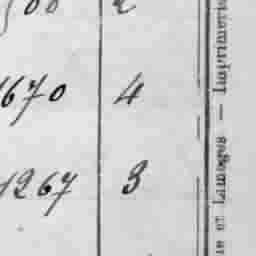 1670 4
1267 3
et Limoges — Imprimerie